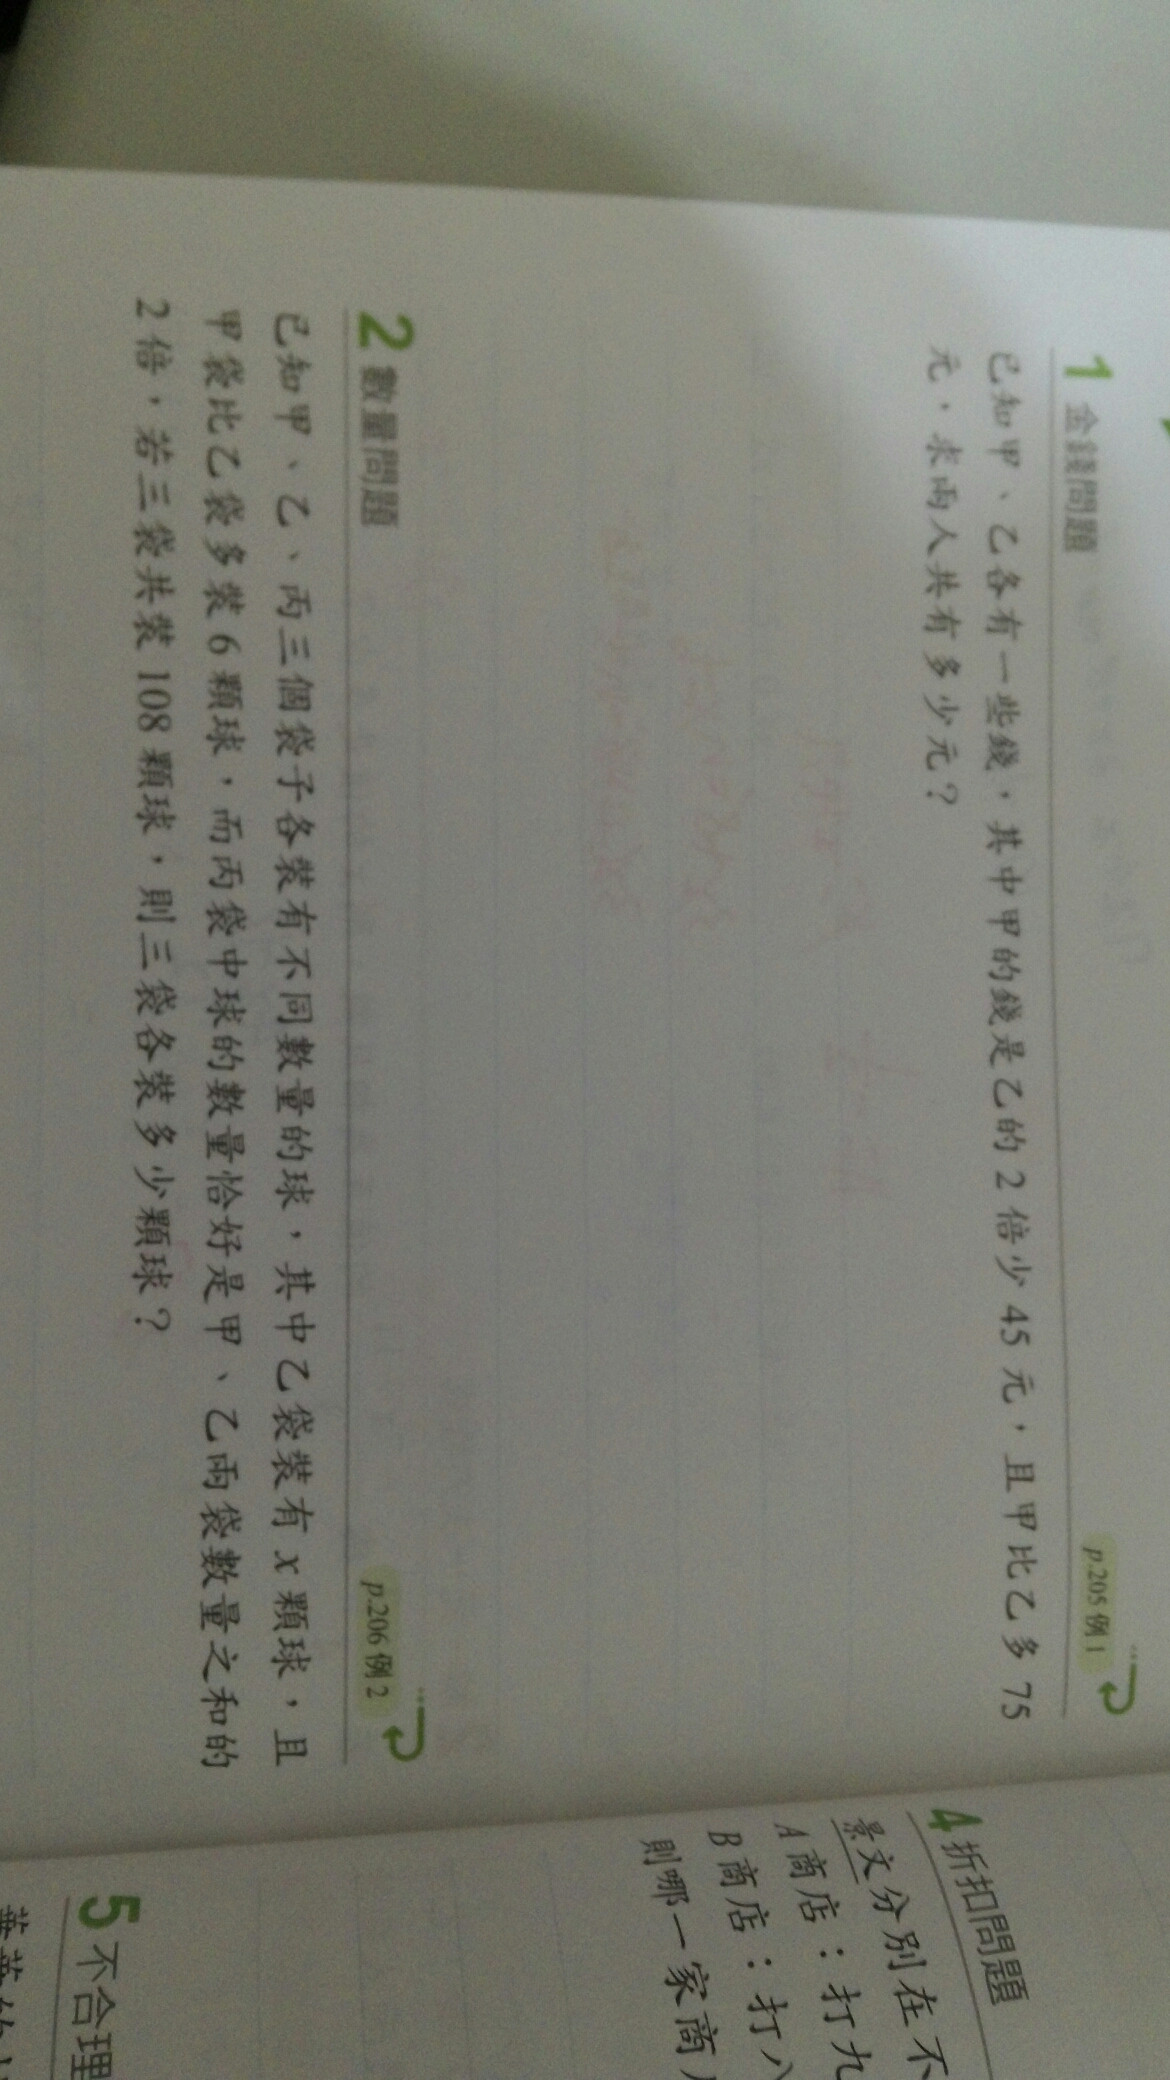 1 金錢問題 p.205 例 1
已知甲、乙各有一些錢，其中甲的錢是乙的 2 倍少 45 元，且甲比乙多 75
元，求兩人共有多少元？
2 數量問題 p.206 例 2
已知甲、乙、丙三個袋子各裝有不同數量的球，其中乙袋裝有 x 顆球，且
甲袋比乙袋多裝 6 顆球，而丙袋中球的數量恰好是甲、乙兩袋數量之和的
2 倍，若三袋共裝 108 顆球，則三袋各裝多少顆球？
4 折扣問題
景文分別在不
A 商店：打九
B 商店：打八
則哪一家商
5 不合理